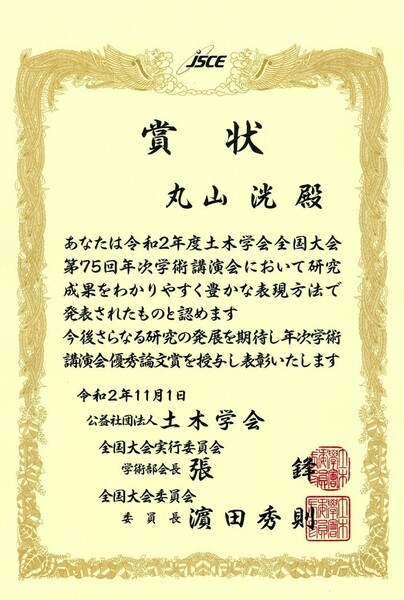 JSCE
賞状
丸山洸殿
あなたは令和2年度土木学会全国大会
第75回年次学術講演会において研究
成果をわかりやすく豊かな表現方法で
発表されたものと認めます
今後さらなる研究の発展を期待し年次学術
講演会優秀論文賞を授与し表彰いたします
令和2年11月1日
公益社団法人 土木学会
全国大会実行委員会
学術部会長 張 鋒
全国大会委員会
委員長 濵田秀則